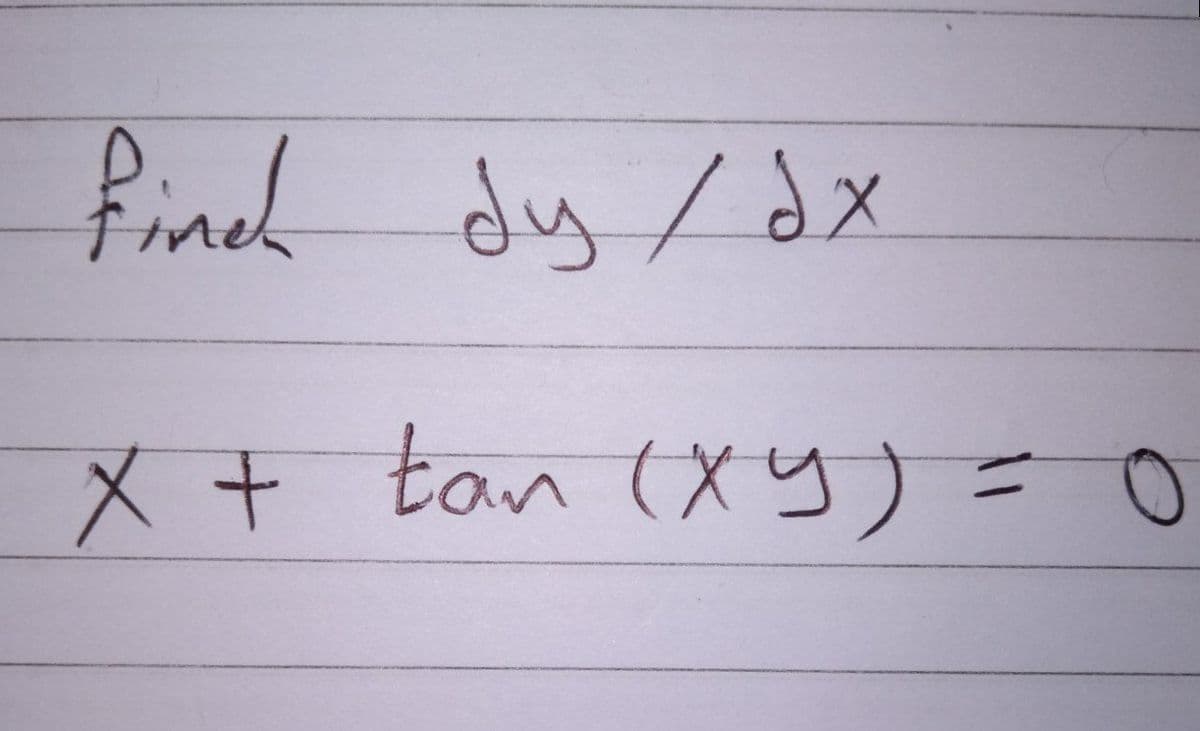 find dy / dx
x + tan (xy) = 0